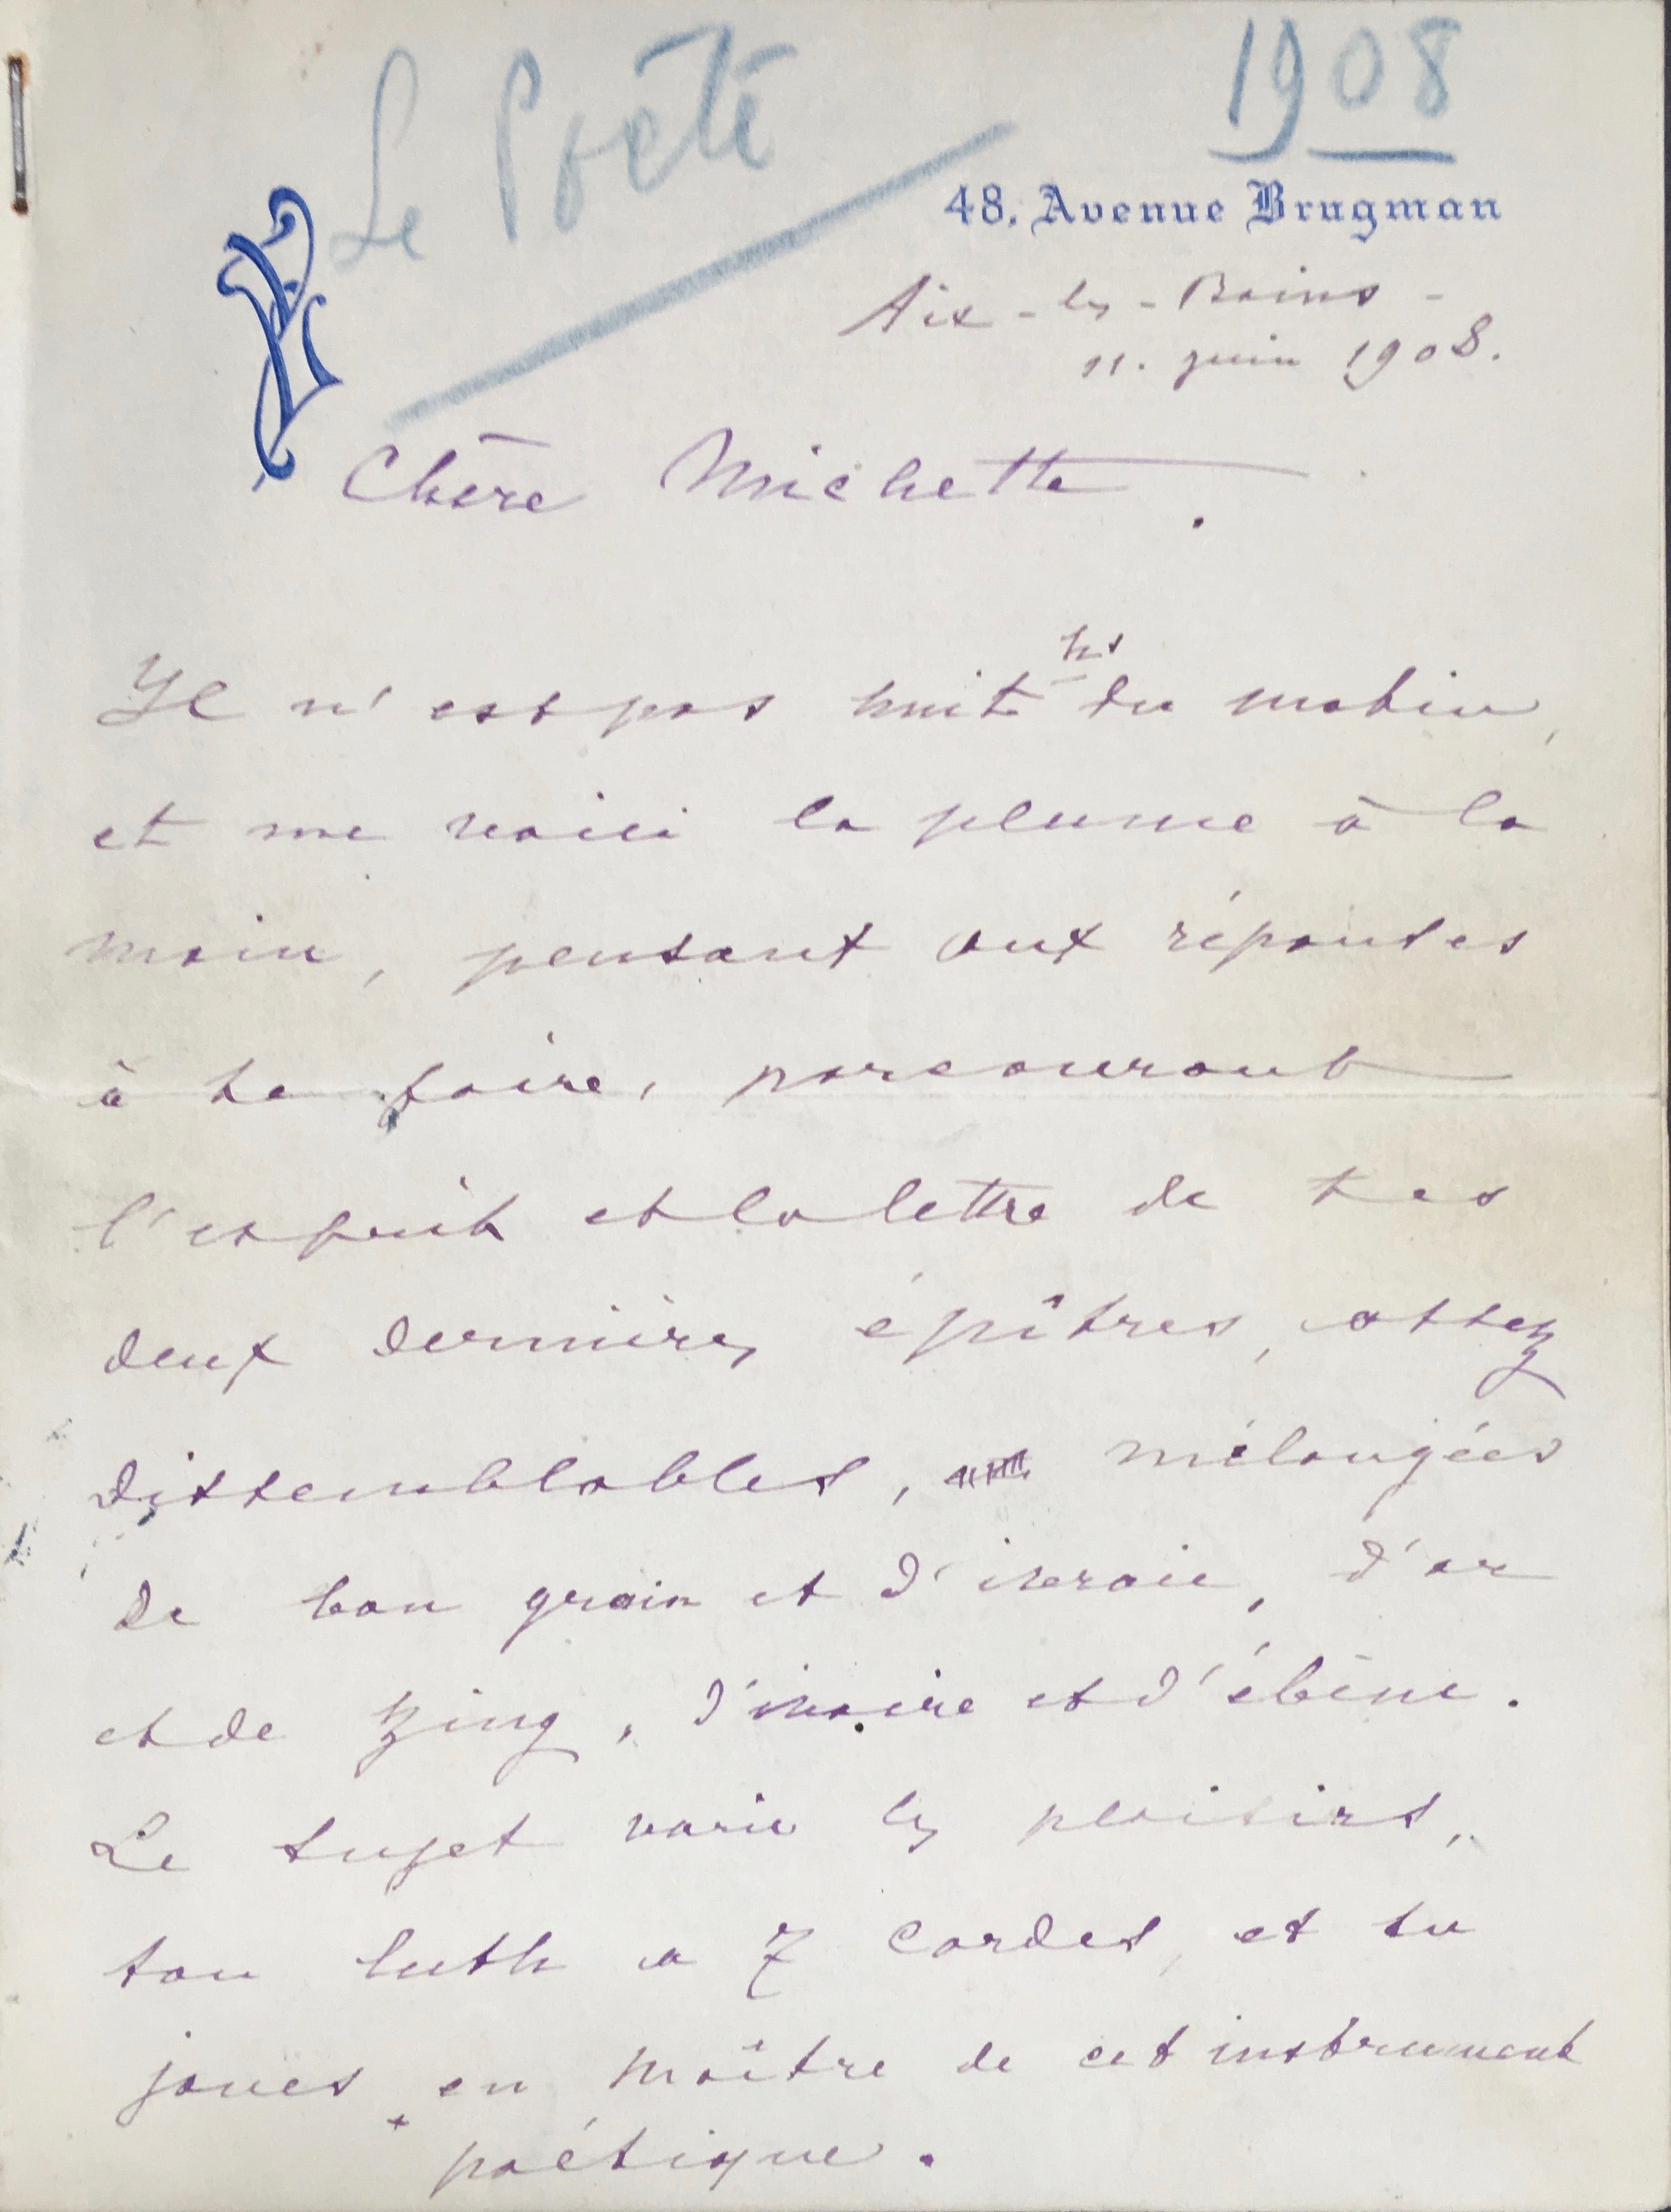 Le Poète
1908
48, Avenue Brugman
Aix-les-Bains -
11. juin 1908.
Chère Michette.
Il n'est pas huit hs du matin,
et me voici la plume à la
main, pensant aux réponses
à te faire, parcourant
l'esprit et la lettre de tes
deux dernières épîtres, assez
dissemblables, mélangées
de bon grain et d'ivraie, d'or
et de zing, d'ivoire et d'ébène.
Le sujet varie les plaisirs,
ton luth a 7 cordes, et tu
joues en maître de cet instrument
poétique.